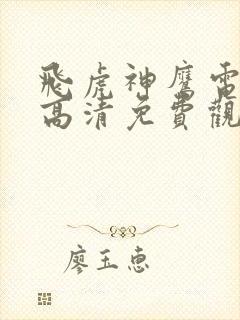 飛虎神鷹電
高清免費觀
廖玉惠